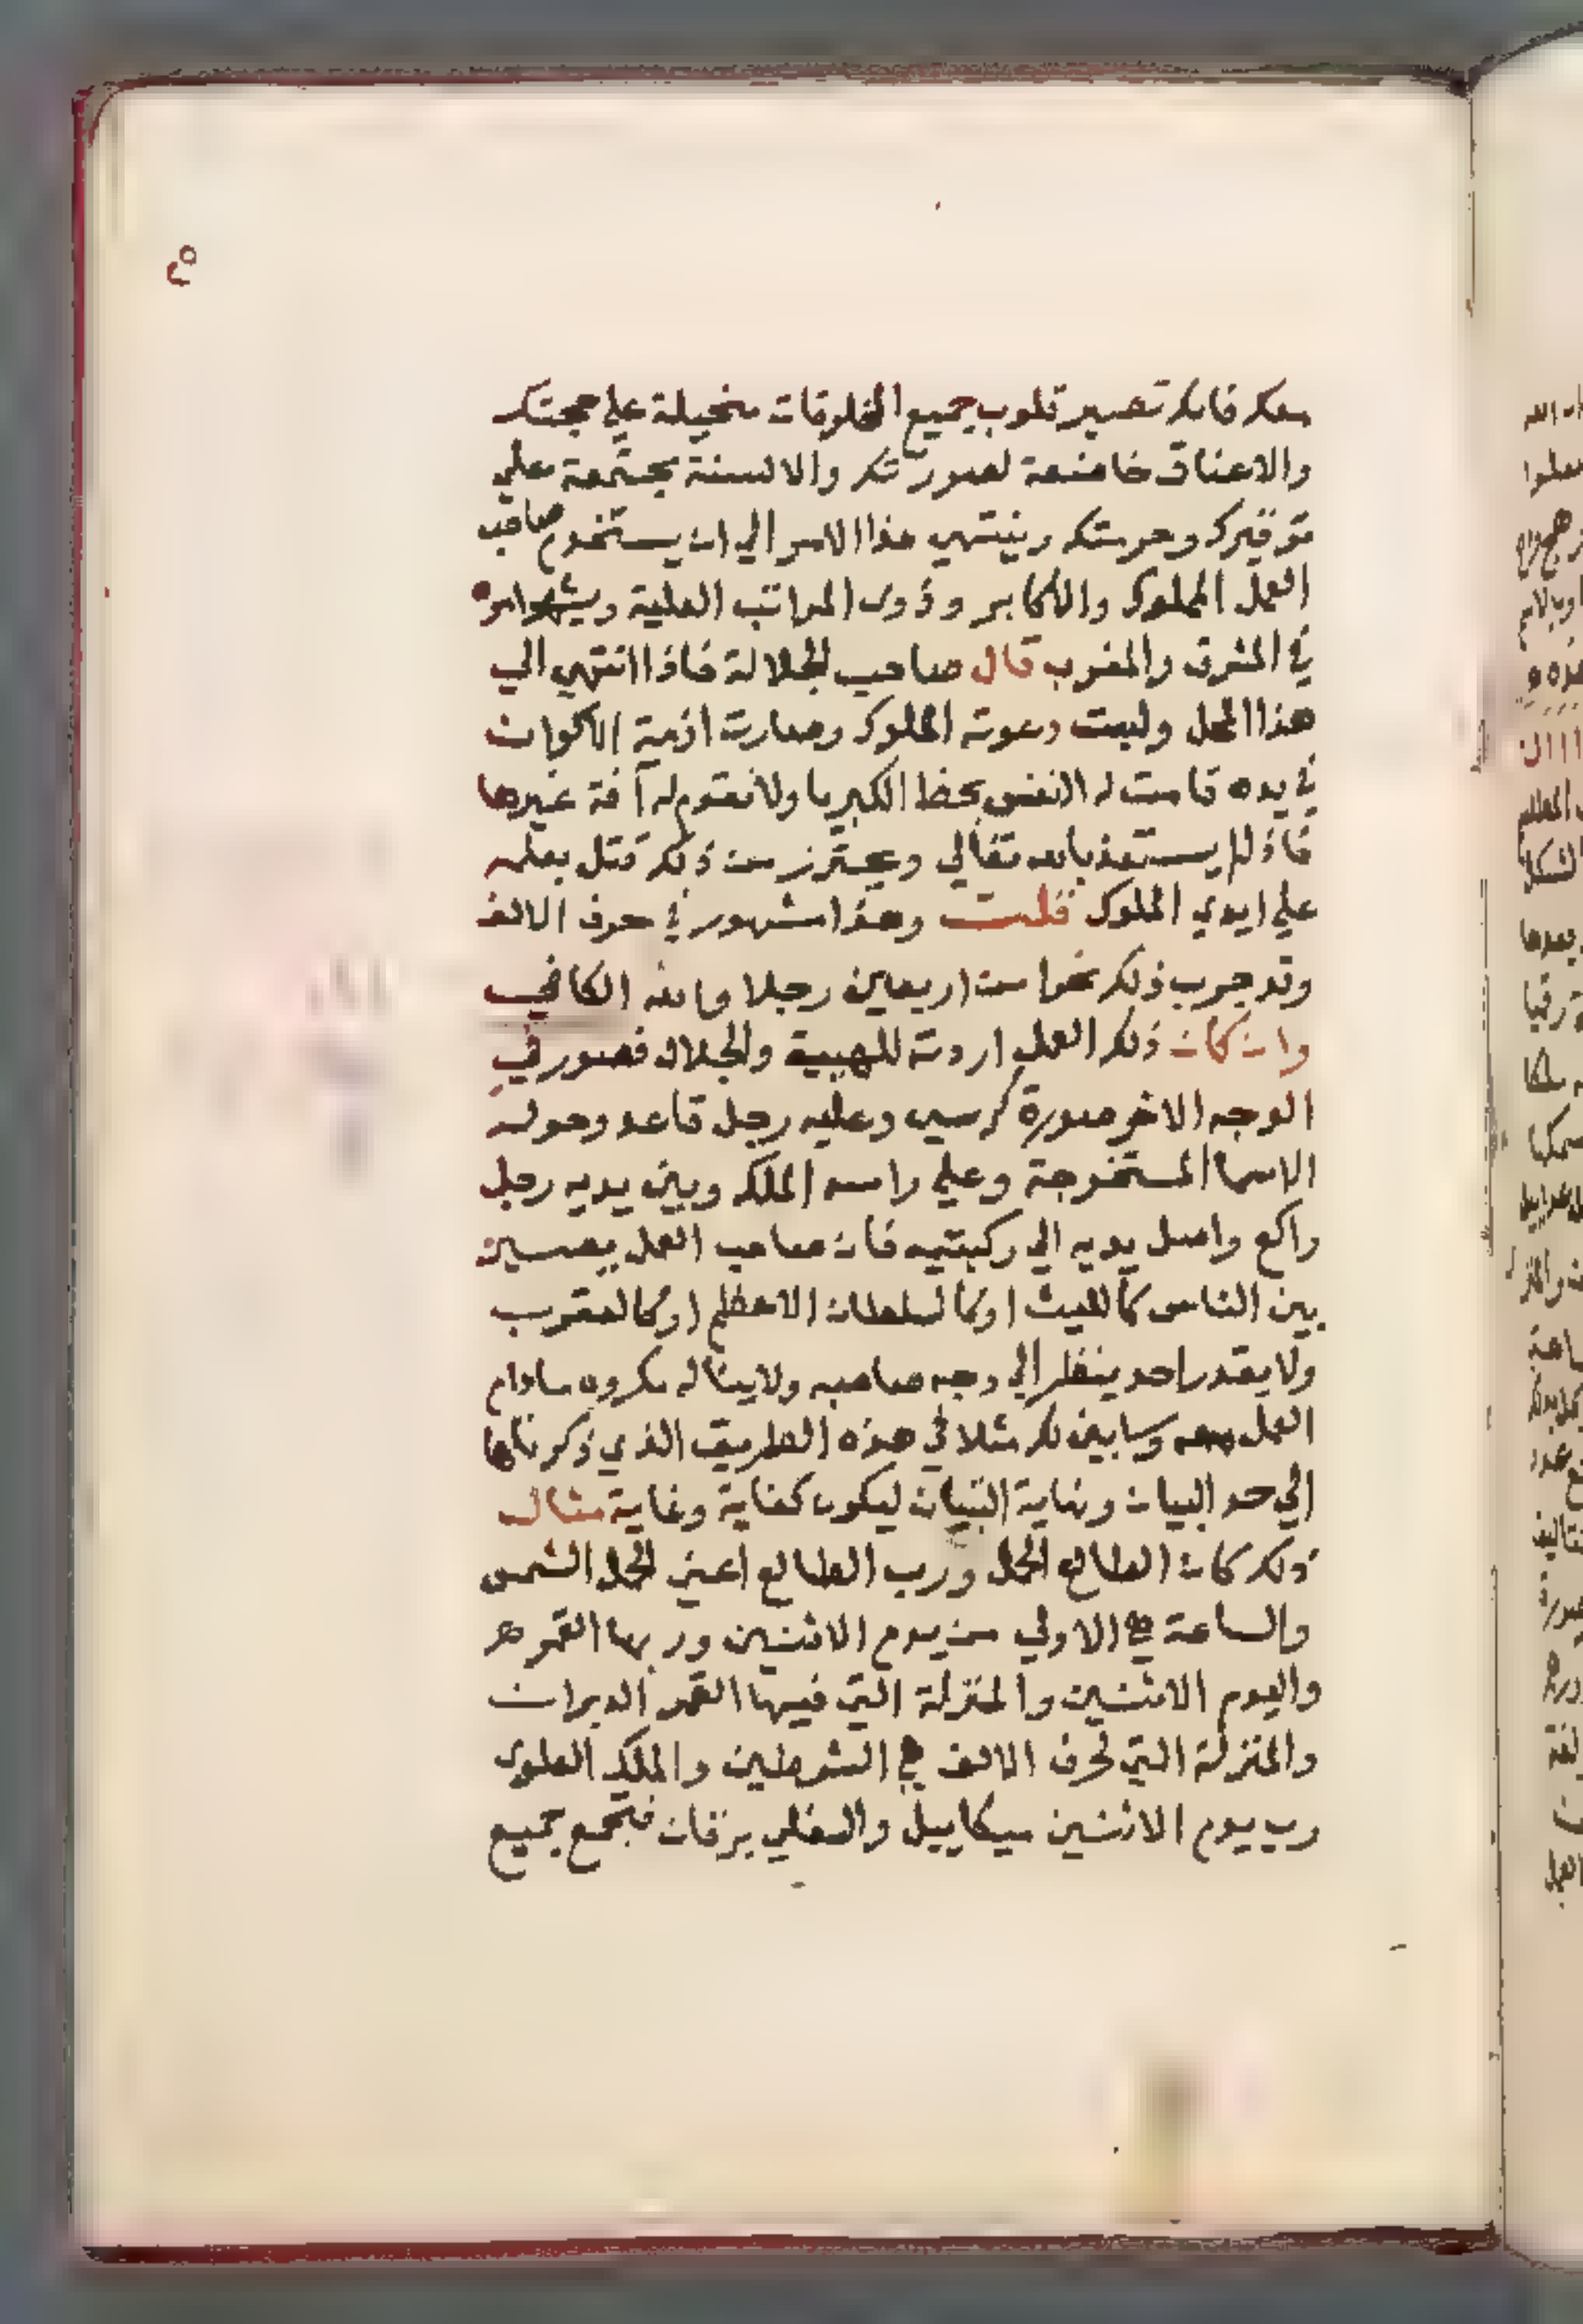 معك فانك تصير قلوب جميع المخلوقات منحيلة علي محبتك
والاعناق خاضعة لصورتك والالسنة مجتمعة علي
توقيرك وحرمتك وينتهي هذا الامر الي ان يستخدم صاحب
العمل الملوك والاكابر وذوى المراتب العلية ويشهر امره
في المشرق والمغرب قال صاحب الجلالة فاذا انتهي الي
هذا المحل ولبت دعوته الملوك وصارت ازمة الاكوان
في يده قامت له الانفس بحظ الكبريا ولا تقوم له آفة غيرها
فاذ لم يستعذ بالله تعالي ويحترز من ذلك قتل بعلمه
علي ايدي الملوك قلت وهذا مشهور في حرف الالف
وقد جرب ذلك نحوا من اربعين رجلا والله الكافي
وان كان ذلك العمل اردته للهيبة والجلال فصور في
الوجه الاخر صورة كرسي وعليه رجل قاعد وحوله
الاسما المستخرجة وعلي راسه الملك وبين يديه رجل
راكع واصل يديه الي ركبتيه فان صاحب العمل يصير
بين الناس كالليث او كالسلطان الاعظم او كالعقرب
ولا يقدر احد ينظر الي وجه صاحبه ولا يناله مكروه مادام
العمل معه وسابين لك مثلا في هذه الطريق الذي ذكرناها
الي حد البيان ونهاية التبيان ليكون كفاية وغاية مثال
ذلك كان الطالع الحمل ورب الطالع اعني الحمل الشمس
والساعة هي الاولي من يوم الاثنين وربها القمر
واليوم الاثنين والمنزلة التي فيها القمر الدبران
والمنزلة التي لحرف الالف هي الشرطين والملك العلوى
رب يوم الاثنين ميكاييل والسفلي بزقان فتجمع جميع